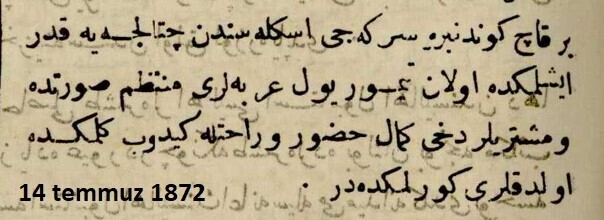 بر قاچ كوندنبرو سركه جی اسكله سندن چتالجه یه قدر
ایشلمكده اولان تیمور یول عربه لری منتظم صورتده
و مشتریلر دخی كمال حضور و راحتله كیدوب كلمكده
اولدقلری كورلمكده در .
14 temmuz 1872